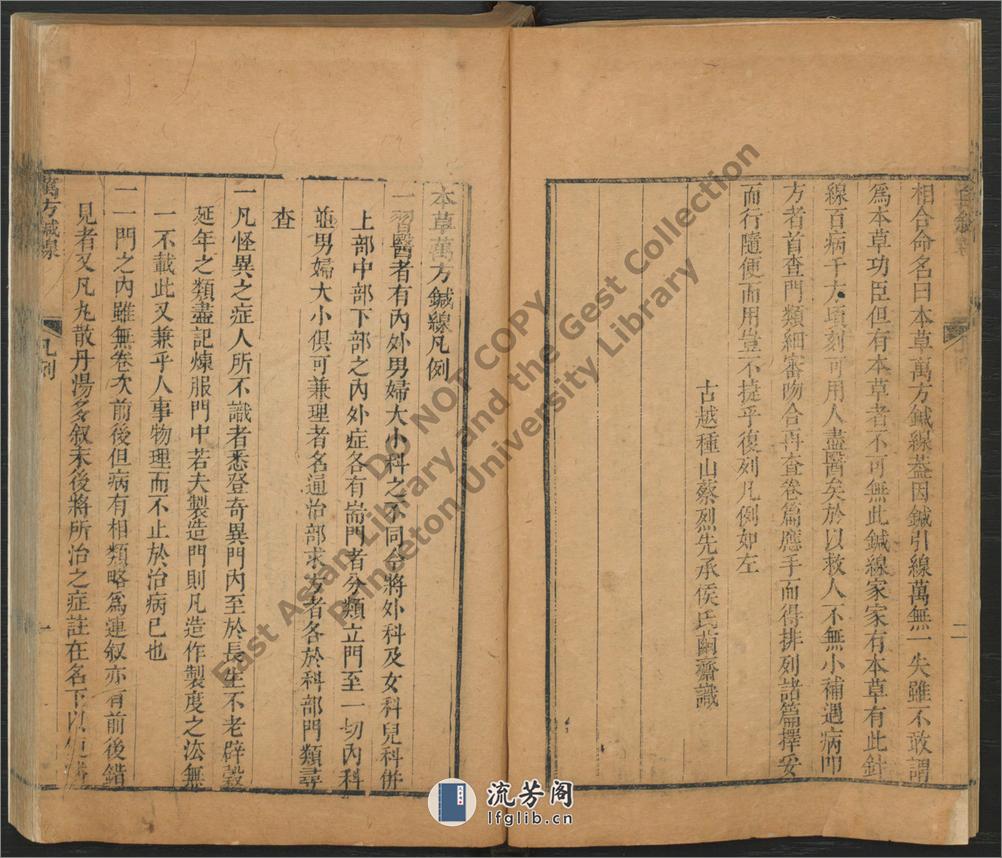 自敘
二
相合命名曰本草萬方鍼線葢因鍼引線萬無一失雖不敢謂
爲本草功臣但有本草者不可無此鍼線家家有本草有此針
線百病千方頃刻可用人盡醫矣於以救人不無小補遇病叩
方者首查門類細審吻合再查卷篇應手而得排列諸篇擇妥
而行隨便而用豈不捷乎復列凡例如左
古越種山蔡烈先承侯氏繭齋識
本草萬方鍼線凡例
一習醫者有內外男婦大小科之不同台將外科及女科兒科併
上部中部下部之內外症各有耑門者分類立門至一切內科
並男婦大小俱可兼理者名通治部求方者各於科部門類尋
查
一凡怪異之症人所不識者悉登奇異門內至於長生不老辟穀
延年之類盡記煉服門中若夫製造門則凡造作製度之法無
一不載此又兼乎人事物理而不止於治病已也
一一門之內雖無卷次前後但病有相類略爲連叙亦有前後錯
見者又凡丸散丹湯多叙末後將所治之症註在名下以
萬方鍼線
凡例
一
DO NOT COPY
East Asian Library and the Gest Collection
Princeton University Library
流芳阁
lfglib.cn